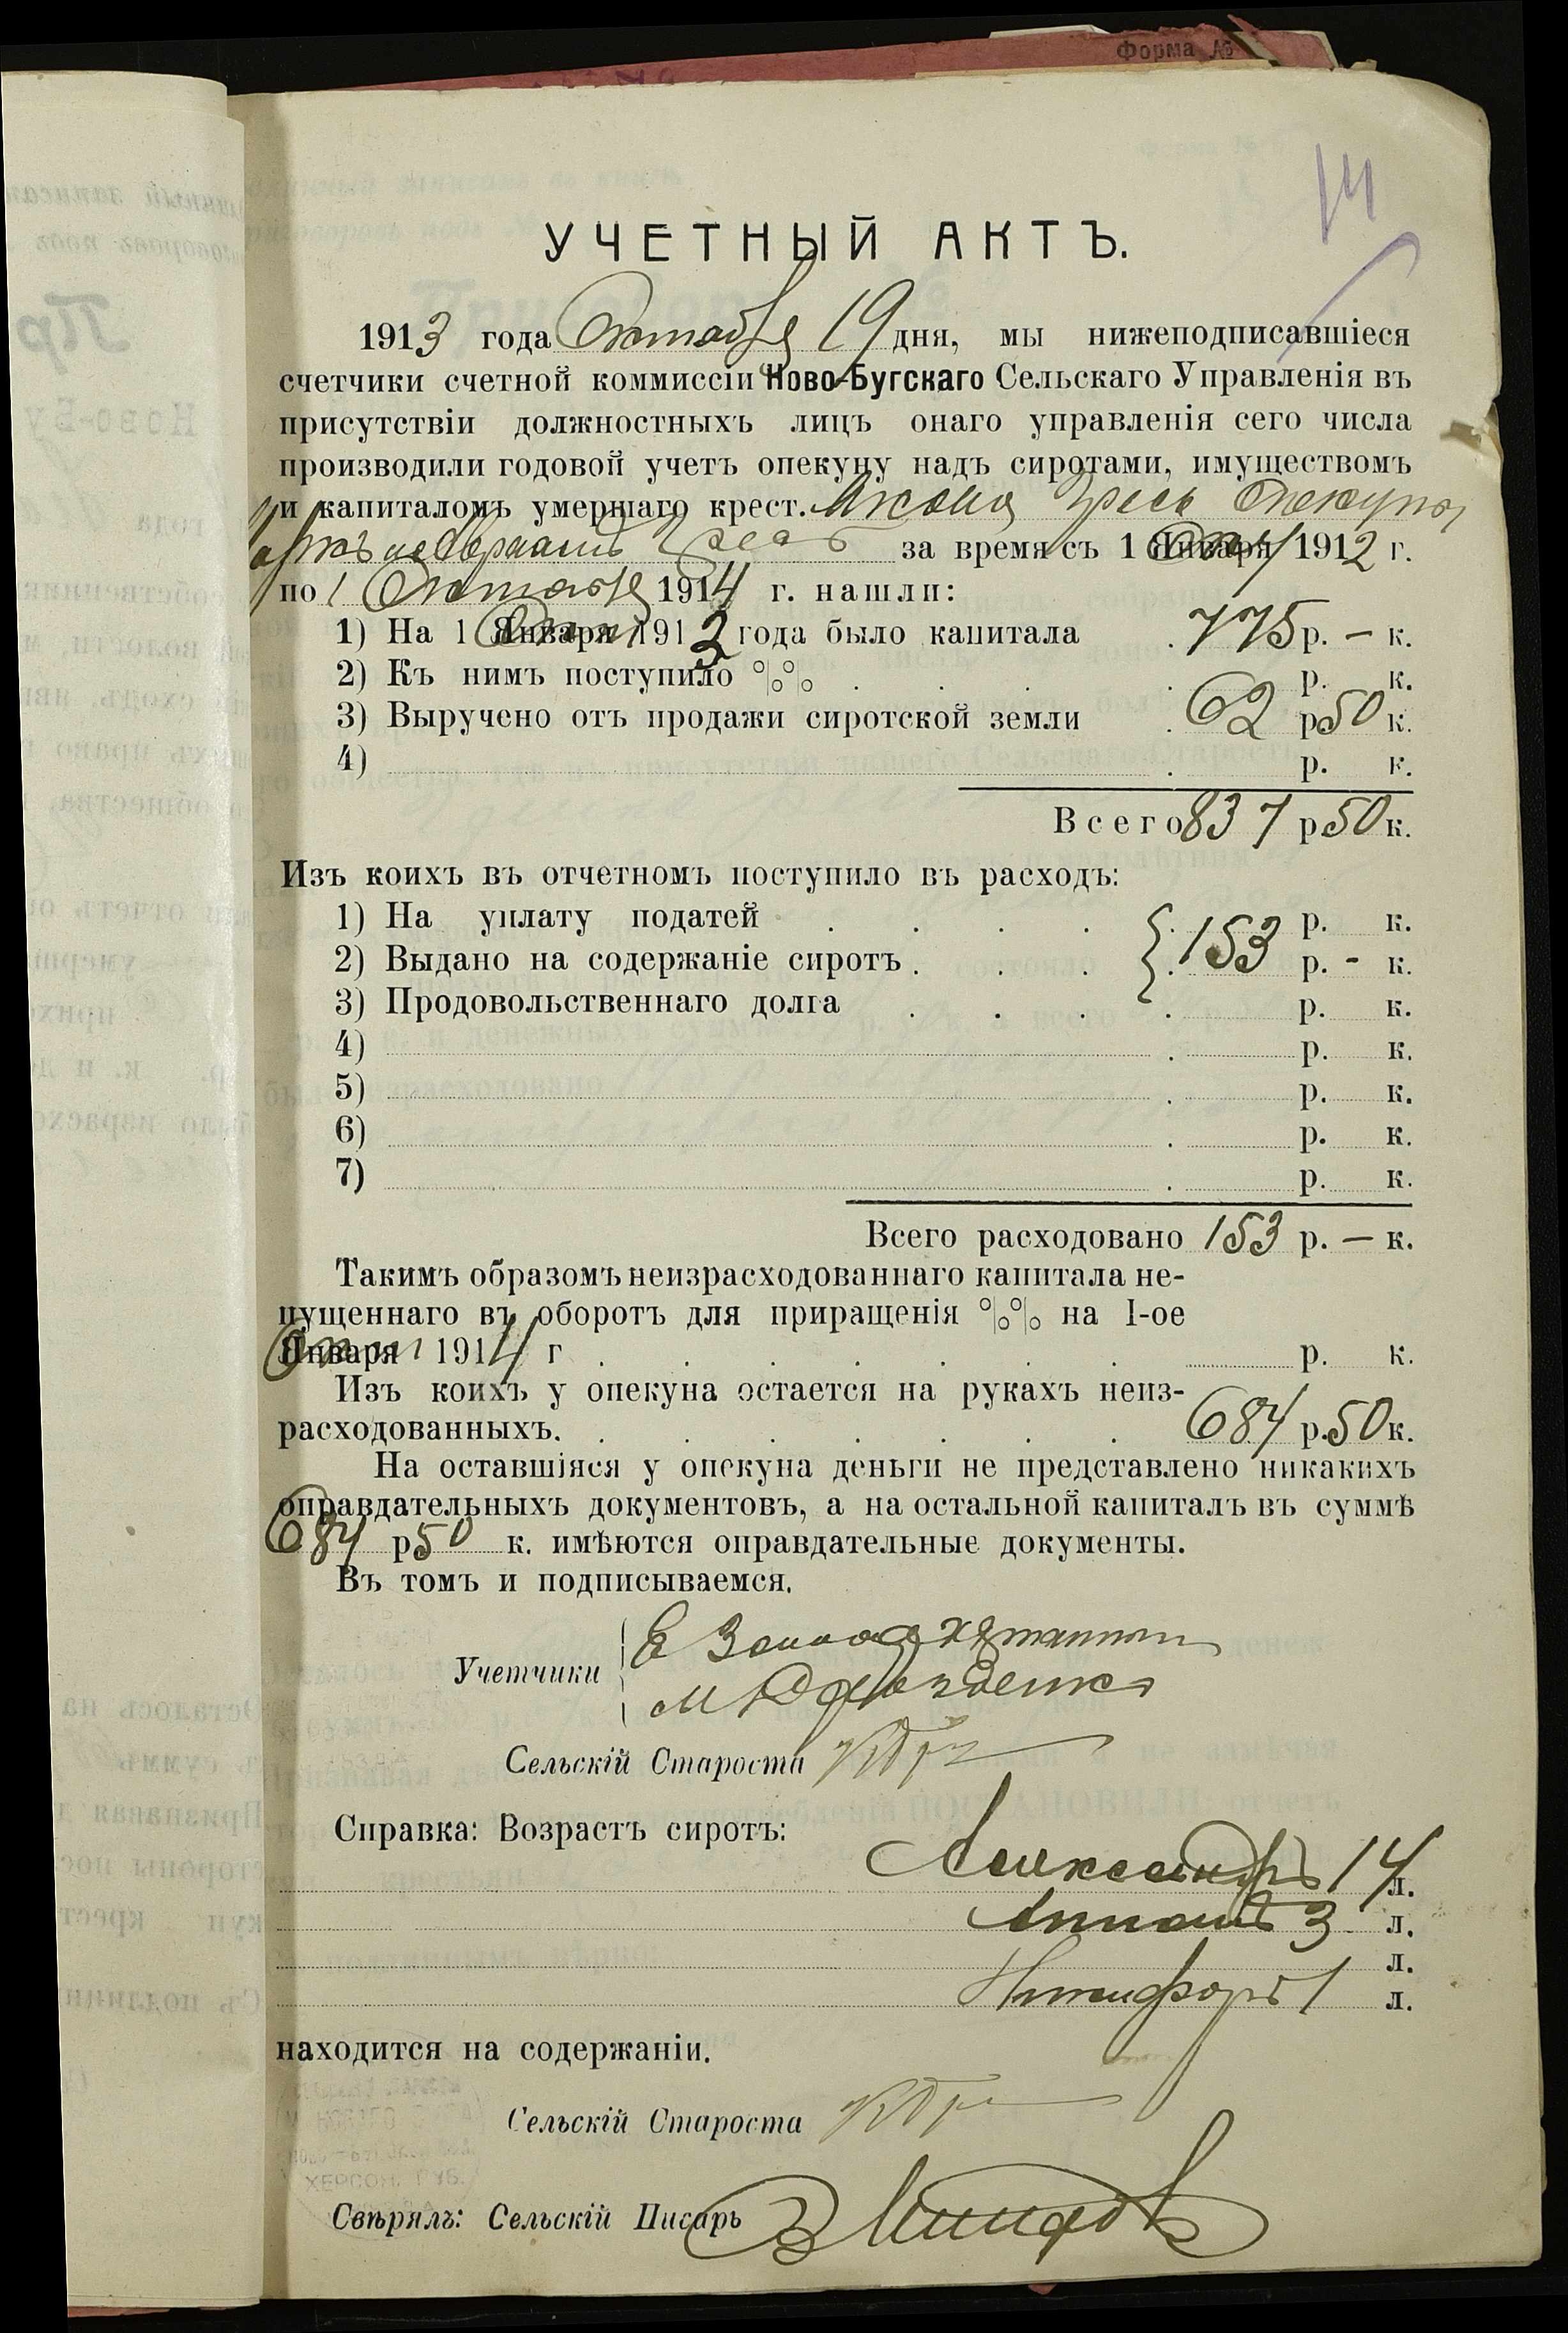 Форма №
14
УЧЕТНЫЙ АКТЪ.
1913 года Октября 19 дня, мы нижеподписавшіеся
счетчики счетной коммиссіи Ново-Бугскаго Сельскаго Управленія въ
присутствіи должностныхъ лицъ онаго управленія сего числа
производили годовой учетъ опекуну надъ сиротами, имуществомъ
и капиталомъ умершаго крест.
за время съ 1 Окт 1912 г.
по 1 Октября 1914 г. нашли:
1) На 1 Окт 1913 года было капитала 775 р. – к.
2) Къ нимъ поступило %% р. к.
3) Выручено отъ продажи сиротской земли 62 р 50 к.
4) р. к.
Всего 837 р 50 к.
Изъ коихъ въ отчетномъ поступило въ расходъ:
1) На уплату податей р. к.
2) Выдано на содержаніе сиротъ. 153 р. - к.
3) Продовольственнаго долга р. к.
4) р. к.
5) р. к.
6) р. к.
7) р. к.
Всего расходовано 153 р. – к.
Такимъ образомъ неизрасходованнаго капитала не-
пущеннаго въ оборотъ для приращенія %% на 1-ое
Окт 1914 г р. к.
Изъ коихъ у опекуна остается на рукахъ неиз-
расходованныхъ. 684 р. 50 к.
На оставшіяся у опекуна деньги не представлено никакихъ
оправдательныхъ документовъ, а на остальной капиталъ въ суммѣ
684 р 50 к. имѣются оправдательные документы.
Въ томъ и подписываемся.
Учетчики
Сельскій Староста
Справка: Возрастъ сиротъ:
Александръ 14 л.
3 л.
л.
Никифоръ 1 л.
находится на содержаніи.
Сельскій Староста
Свѣрялъ: Сельскій Писарь